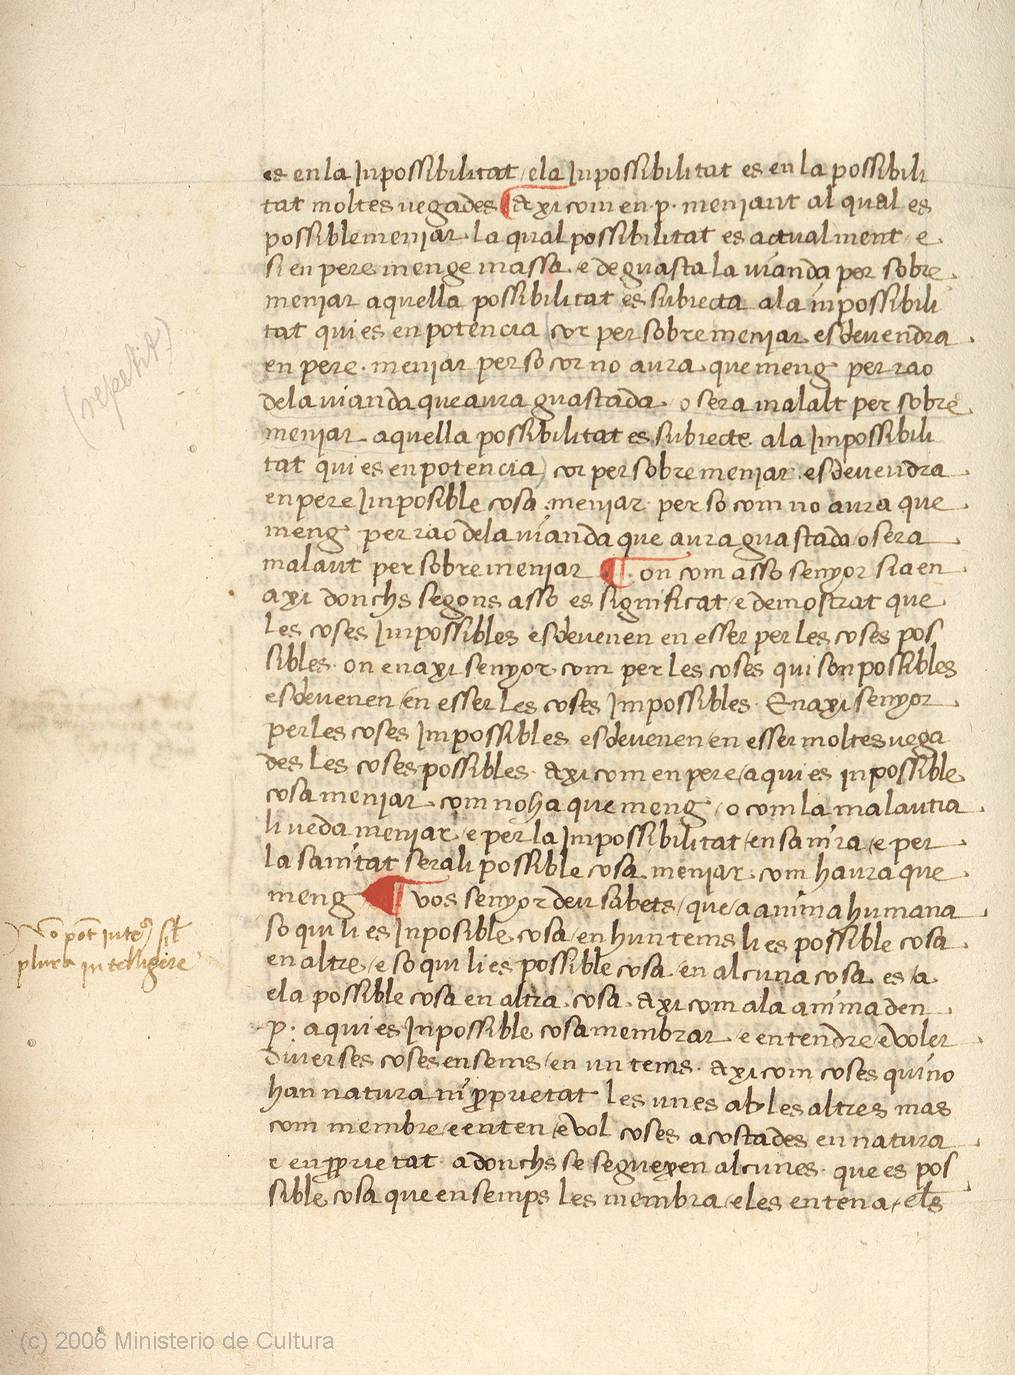 es en la Inpossibilitat / e la Inpossibilitat es en la possibili
tat moltes vegades ¶ axi com en .p. meniant al qual es
possible meniar. la qual possibilitat es actualment e
si en pere menge massa. e deguasta la vianda per sobre
meniar aquella possibilitat es subiecta a la inpossibili
tat qui es en potencia / cor per sobre meniar. esdevendra
en pere. meniar per so cor no aura. que meng per rao
dela vianda que aura guastada. o sera malalt per sobre
meniar. aquella possibilitat es subiecte. ala Impossibili
tat qui es en potencia) cor per sobre meniar. esdevendra
en pere Imposible cosa. meniar. per so com no aura que
meng per rao dela vianda que aura guastada / o sera
malaut per sobre meniar ¶. on com asso senyor sia en
axi donchs segons asso es significat / e demostrat que
les coses Impossibles esdevenen en esser per les coses pos
sibles. on en axi senyor. com per les coses qui son possibles
esdevenen / en esser les coses Impossibles. En axi senyor
per les coses Impossibles esdevenen / en esser moltes vega
des les coses possibles. axi com en pere / a qui es inpossible
cosa meniar. com no ha que meng / o com la malautia
li veda meniar / e per la Impossibilitat / en sanira / e per
la sanitat sera li possible cosa. meniar. com haura que
meng ¶ vos senyor deu sabets / que / a anima humana
so qui li es Inposible cosa / en hun tems li es possible cosa
en altre / e so qui li es possible cosa / en alcuna cosa es / a
ela possible cosa en altra cosa. axi com ala anima den
p. a qui es Inpossible cosa membrar e entendre e voler
diverses coses ensems / en un tems. axi com coses qui no
han natura ni ppvetat les unes ab les altres mas
com membre e enten / e vol coses acostades en natura
e en ppvetat. adonchs se seguexen alcunes. que es pos
sible cosa que en semps les membra / e les entena / e les
No pot
plura intelligere
(repetit)
(c) 2006 Ministerio de Cultura